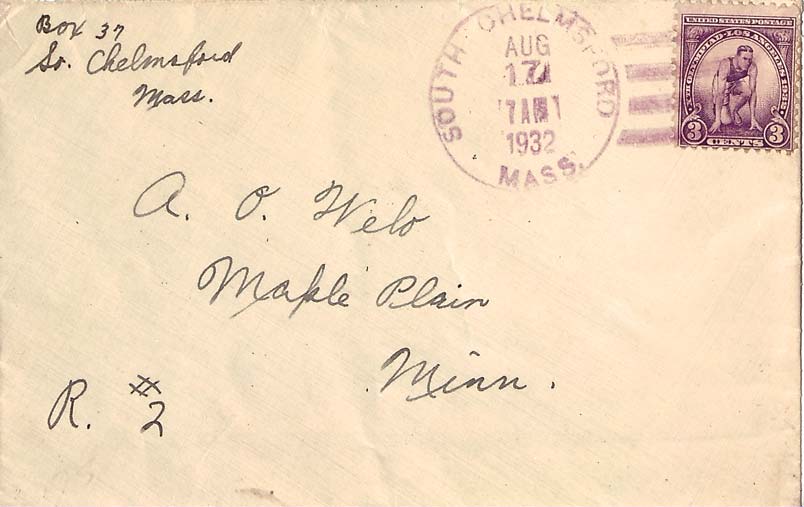 Box 37
So. Chelmsford
Mass.
SOUTH CHELMSFORD
AUG
17
7 AM
1932
MASS.
UNITED STATES POSTAGE
OLYMPIAD·LOS ANGELES
3 CENTS 3
A. O. Welo
Maple Plain
Minn.
R. #2